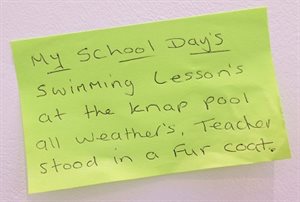 My School Day's
Swimming Lesson's
at the Knap pool
all weather's, Teacher
stood in a Fur coat.